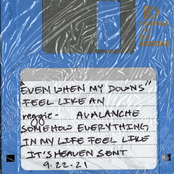 "EVEN WHEN MY DOWNS"
FEEL LIKE AN
reggie- AVALANCHE
SOMEHOW EVERYTHING
IN MY LIFE FEEL LIKE
IT'S HEAVEN SENT
9.22.21